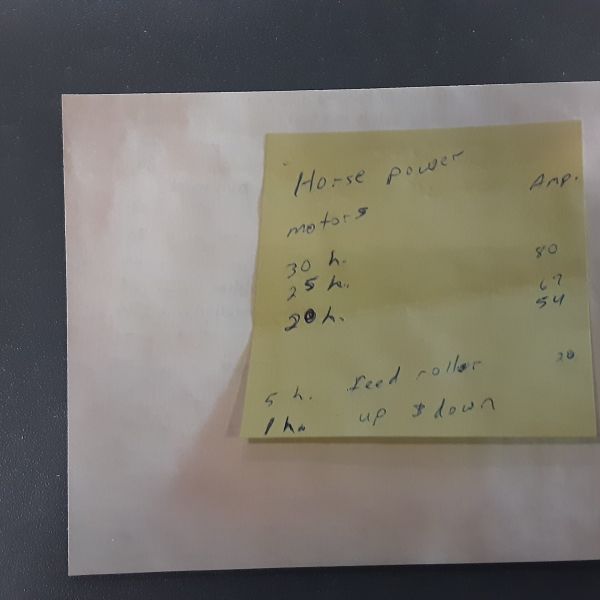 Horse power Amp.
motors
30 h. 80
25 h. 67
20 h. 54
5 h. feed roller 20
1 h. up & down